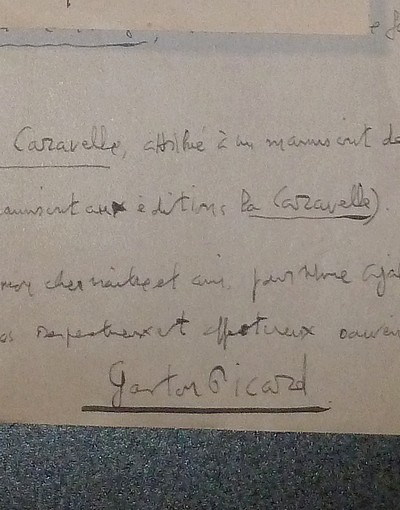 Caravelle, attribué à un manuscrit de
manuscrit aux éditions la Caravelle).
mon cher maître et ami, pour votre
respectueux et affectueux souvenir
Gaston Picard